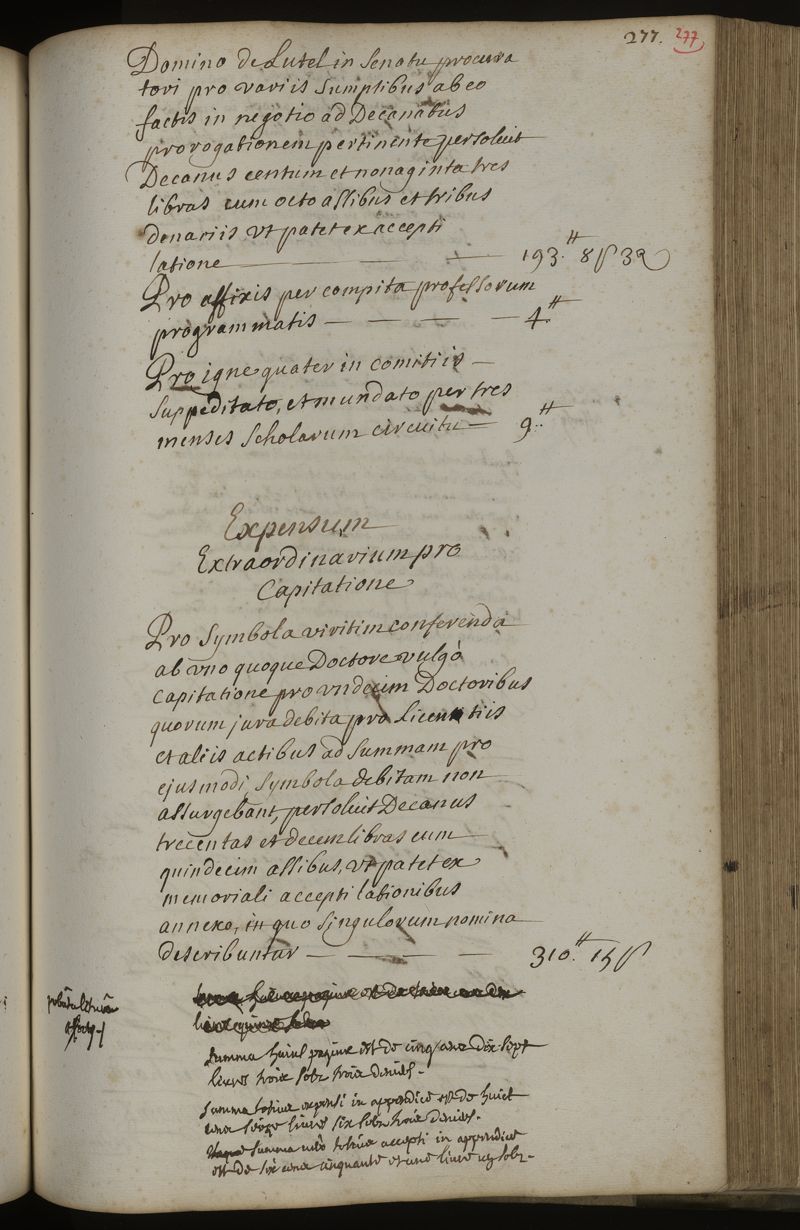 277. 277
Domino de Lutel in Senatu procura
tori pro variis Sumptibus ab eo
factis in negotio ad Decanatus
prorogationem pertinente persoluit
Decanus centum et nonaginta tres
libras cum octo assibus et tribus
denariis vt patet ex accepti
latione — 193.tt 8ſ 3d
Pro affixis per compita professorum
programmatis — — — — 4.tt
Pro igne quater in comitiis —
Suppeditato, et mundato per tres
menses Scholarum circuitu — 9.tt
Expensum
Extraordinarium pro
Capitatione
Pro Symbola viritim conferenda
ab vno quoque Doctore vulgò
capitatione pro vndecim Doctoribus
quorum jura debita pro Licentiis
et aliis actibus ad Summam pro
ejusmodi Symbola debitam non
assurgebant, persoluit Decanus
trecentas et decem libras cum
quindecim assibus, vt patet ex
memoriali accepti lationibus
annexo, in quo Singulorum nomina
describuntur — — — 310.tt 15ſ
Summa huius paginæ est de cinq cens dix sept
livres trois solz trois deniers.
Summa totius expensi in appendice est de huict
cens seize livres six solz trois deniers.
Summa totius accepti in appendice
est de six cens cinquante et une livre solz.